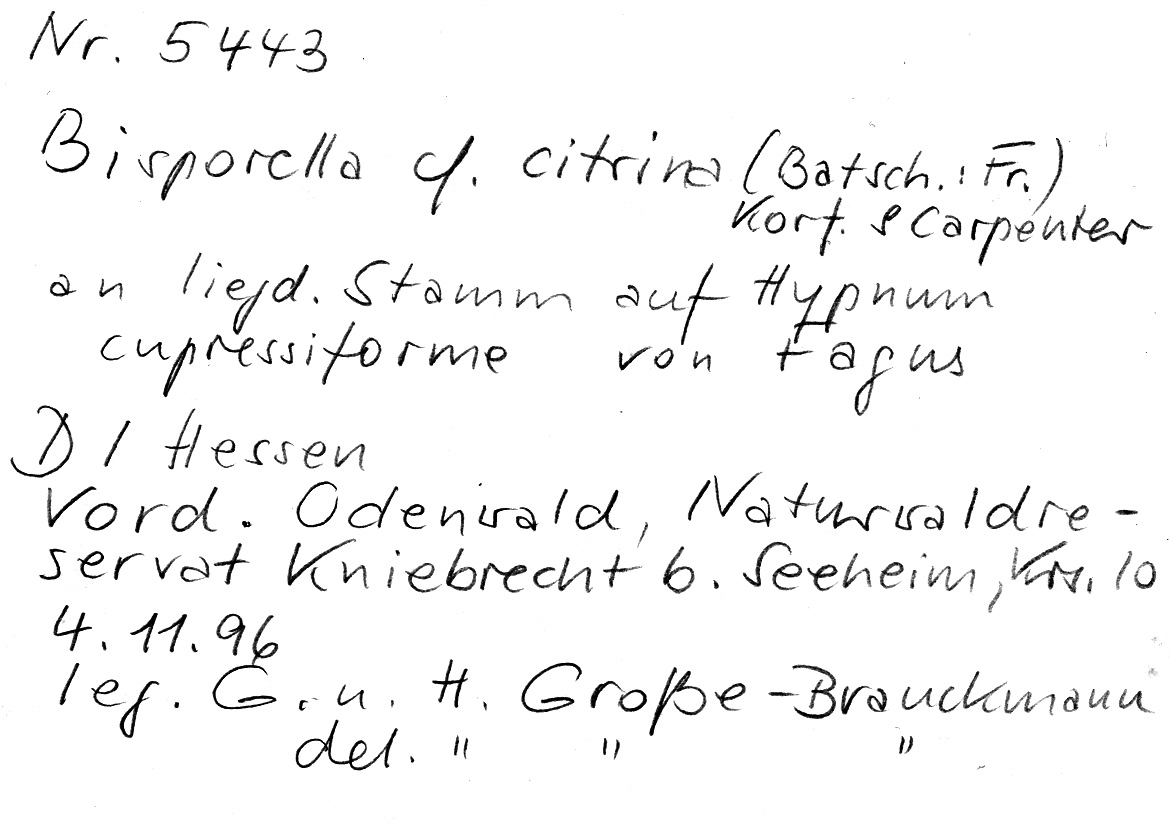 Nr. 5443
Bisporella cf. citrina (Batsch.: Fr.)
Korf. & Carpenter
an liegd. Stamm auf Hypnum
cupressiforme von Fagus
D / Hessen
Vord. Odenwald, Naturwaldre-
servat Kniebrecht b. Seeheim, Krs. 10
4.11.96
leg. G. u. H. Große-Brauckmann
del. " " "